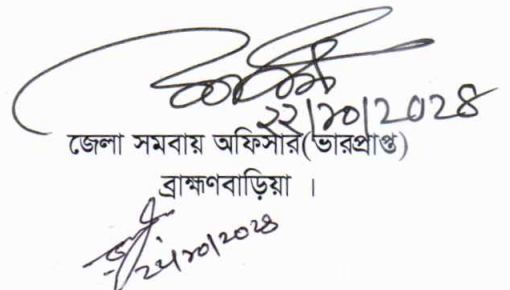 ২২/১০/২০২৪
জেলা সমবায় অফিসার(ভারপ্রাপ্ত)
ব্রাহ্মণবাড়িয়া ।
২২/১০/২০২৪